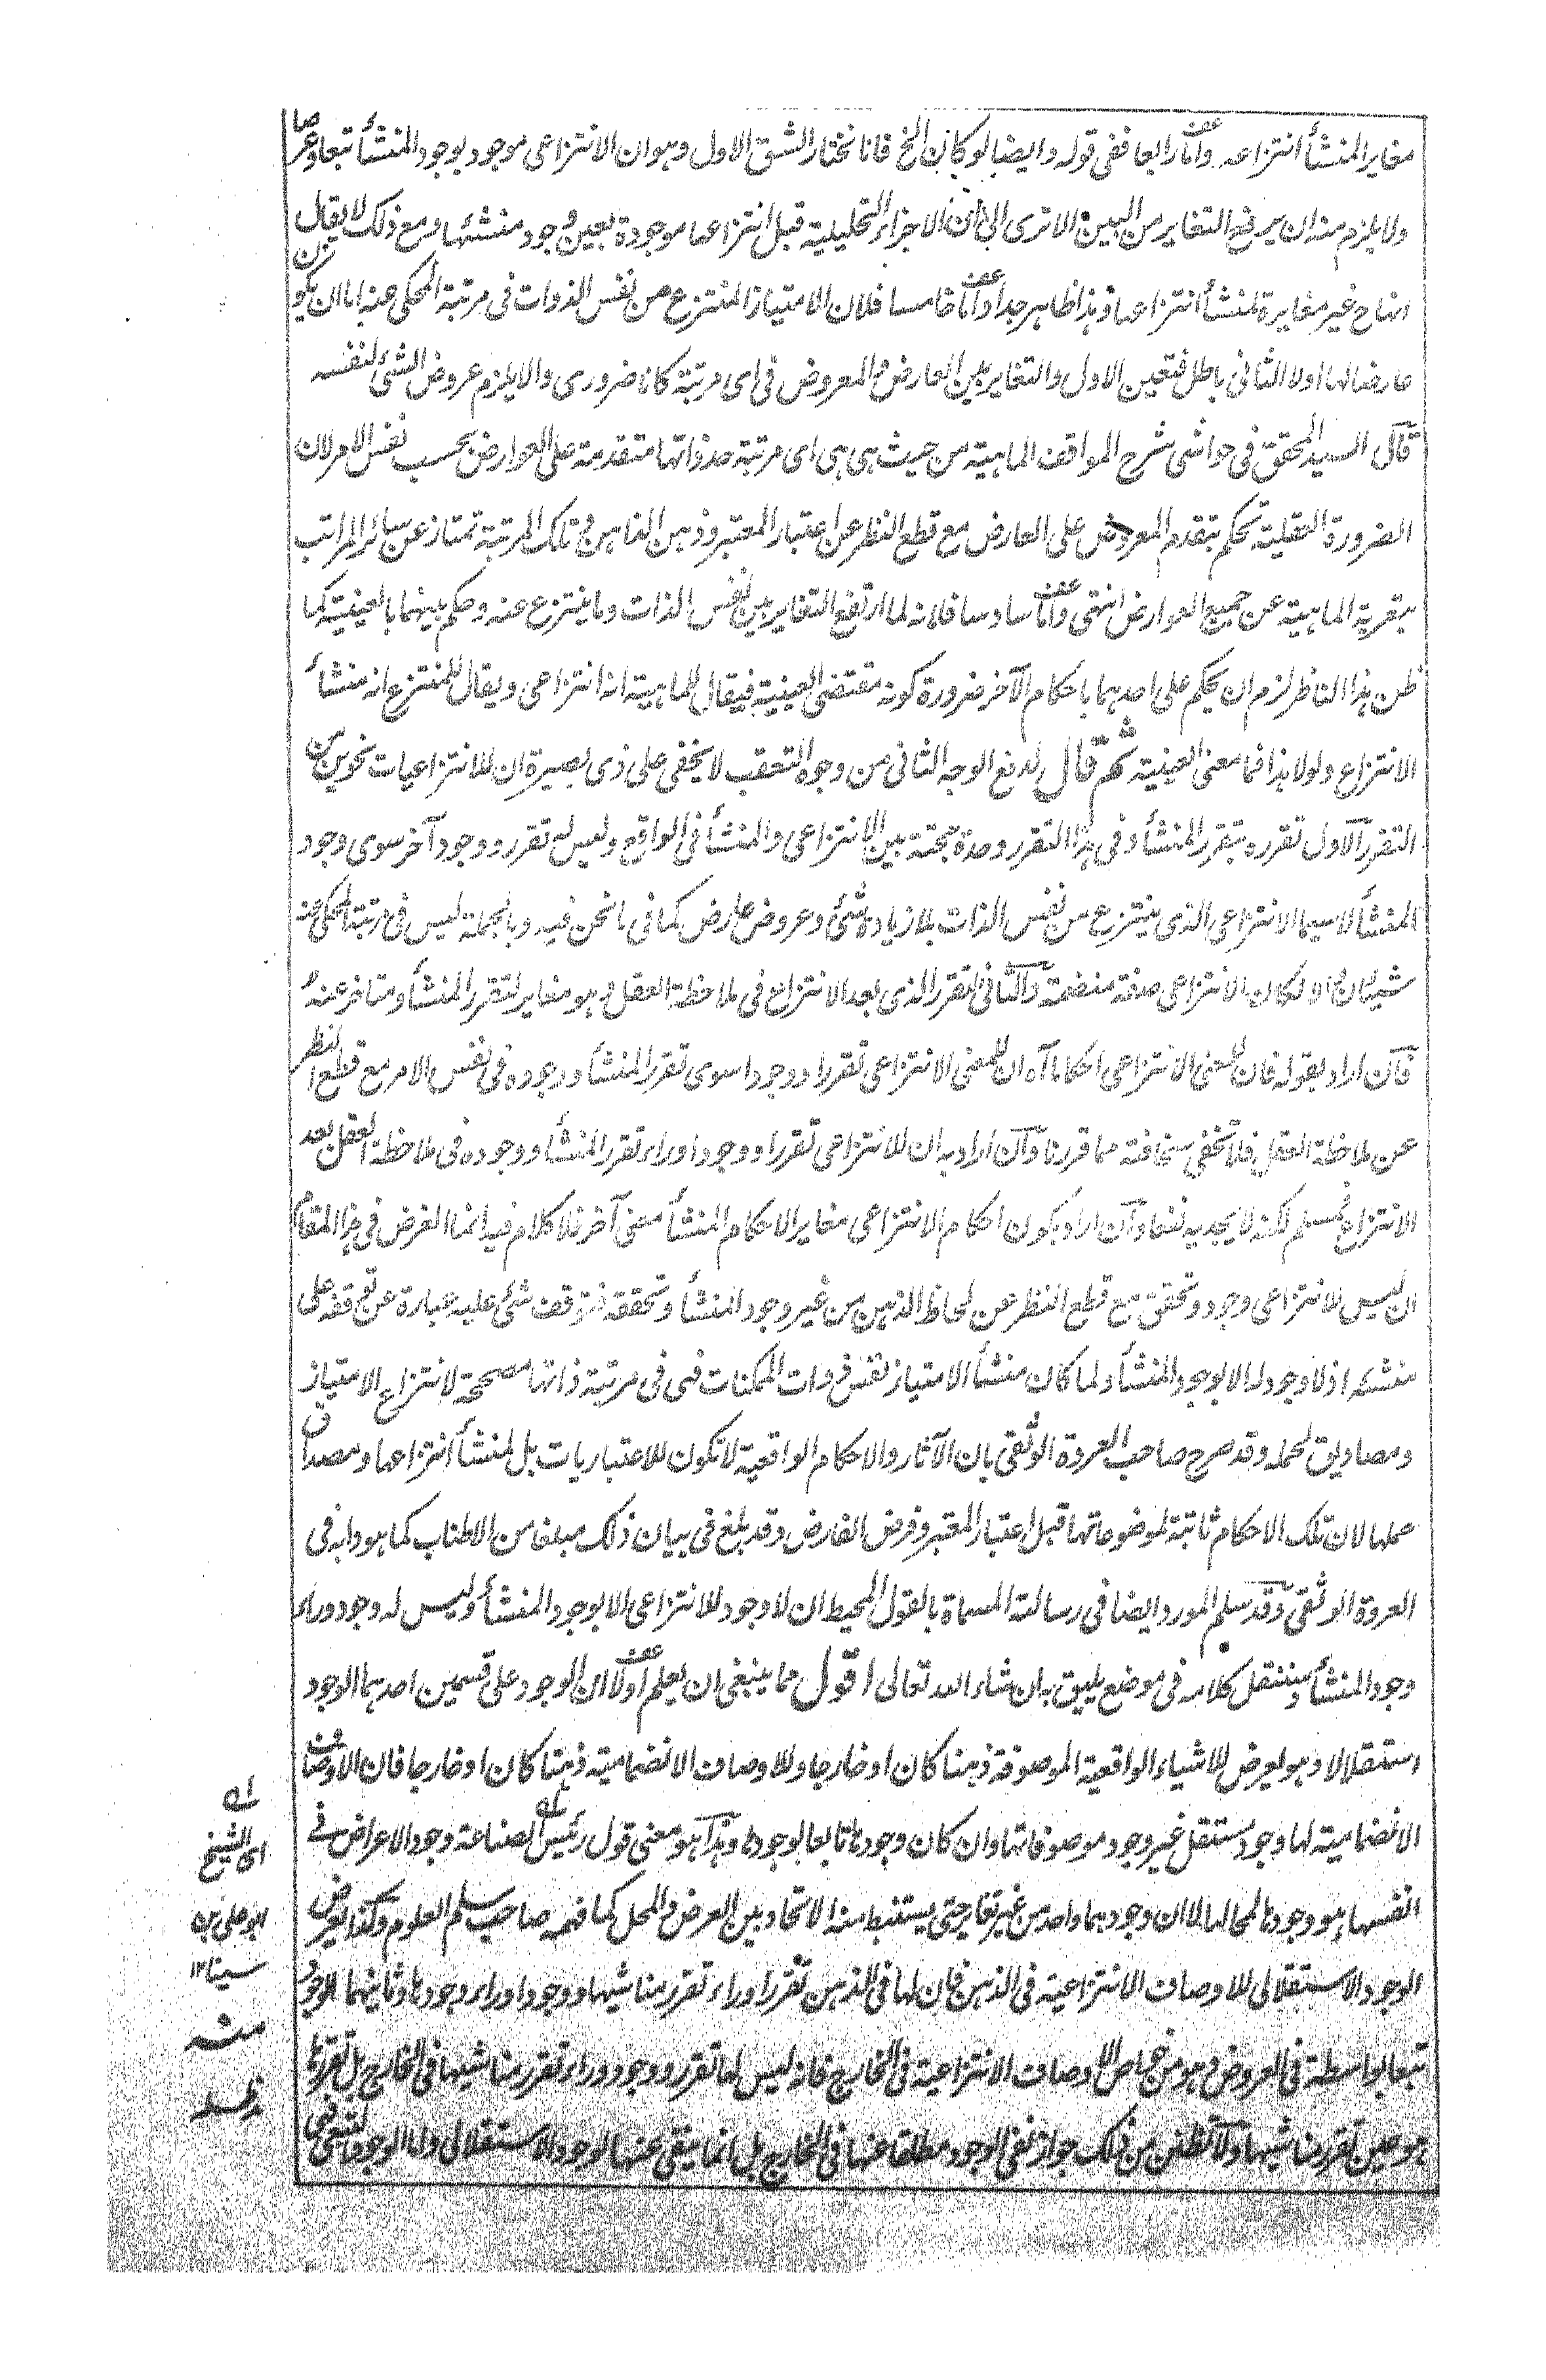 مغاير المنشأ انتزاعه واما رابعا ففى قوله وايضا لو كان الخ فانا نختار الشق الاول وهو ان الانتزاعى موجود بوجود المنشأ تبعا وعرضا
ولا يلزم منه ان يرفع التغاير من البين الا ترى الى ان الاجزاء التحليلية قبل انتزاعها موجودة بعين وجود منشئها ومع ذلك لا يقال
انها ح غير مغايرة لمنشأ انتزاعها وهذا ظاهر جدا واما خامسا فلان الامتياز المنتزع عن نفس الذوات فى مرتبة المحكى عنه اما ان يكون
عارضا لها اولا الثانى باطل فتعين الاول والتغاير بين العارض والمعروض فى اى مرتبة كانا ضرورى والا يلزم عروض الشئ لنفسه
قال السيد المحقق فى حواشى شرح المواقف الماهية من حيث هى هى اى مرتبة حد ذاتها متقدمة على العوارض بحسب نفس الامر لان
الضرورة العقلية تحكم بتقدم المعروض على العارض مع قطع النظر عن اعتبار المعتبر وذهن الذاهن فى تلك المرتبة تمتاز عن سائر المراتب
بتعرية الماهية عن جميع العوارض انتهى واما سادسا فلانه لما ارتفع التغاير بين نفس الذات وما ينتزع عنه وحكم بينهما بالعينية كما
ظن هذا الناظر لزم ان يحكم على احدهما باحكام الآخر ضرورة كونه مقتضى العينية فيقال للماهية انه انتزاعى ويقال للمنتزع انه منشأ
الانتزاع ولولا هذا فما معنى العينية ثم قال لدفع الوجه الثانى من وجوه التعقب لا يخفى على ذى بصيرة ان للانتزاعيات نحوين من
التقرر الاول تقرره بتقرر المنشأ وفى هذا التقرر وحدة بحتة بين الانتزاعى والمنشأ فى الواقع وليس له تقرر ووجود آخر سوى وجود
المنشأ لا سيما الانتزاعى الذى ينتزع من نفس الذات بلا زيادة شئ وعروض عارض كما فى ما نحن فيه وبالجملة ليس فى مرتبة المحكى عنه
شيئان والا لكان الانتزاعى صفة منضمة والثانى التقرر الذى بعد الانتزاع فى ملاحظة العقل وهو مغاير لتقرر المنشأ ومتاخر عنه
فان اراد بقوله فان للمعنى الانتزاعى احكاما آه ان للمعنى الانتزاعى تقررا ووجودا سوى تقرر المنشأ ووجوده فى نفس الامر مع قطع النظر
عن ملاحظة العقل فلا تخفى سخافته مما قررنا وان اراد به ان للانتزاعى تقررا ووجودا وراء تقرر المنشأ ووجوده فى ملاحظة العقل بعد
الانتزاع فمسلم لكنه لا يجديه نفعا وان اراد بكون احكام الانتزاعى مغاير الاحكام المنشأ معنى آخر فلا كلام فيه انما الغرض فى هذا المقام
ان ليس للانتزاعى وجود وتحقق مع قطع النظر عن لحاظ الذهن من غير وجود المنشأ وتحققه فتوقف شئ عليه عبارة عن توقفه على
منشئه اذ لا وجود له الا بوجود المنشأ ولما كان منشأ الامتياز نفس ذوات الممكنات فهى فى مرتبة ذاتها مصححة لانتزاع الامتياز
ومصاديق لحمله وقد صرح صاحب العروة الوثقى بان الآثار والاحكام الواقعية لا تكون للاعتباريات بل لمنشأ انتزاعها ومصداق
حملها لان تلك الاحكام ثابتة لموضوعاتها قبل اعتبار المعتبر وفرض الفارض وقد بلغ فى بيان ذلك مبلغا من الاطناب كما هو دابه فى
العروة الوثقى وقد سلم المورد ايضا فى رسالته المسماة بالقول المحيط ان لا وجود للانتزاعى الا بوجود المنشأ وليس له وجود وراء
وجود المنشأ وسننقل كلامه فى موضع يليق به ان شاء الله تعالى اقول مما ينبغى ان يعلم اولا ان الوجود على قسمين احدهما الوجود
استقلالا وهو يعرض للاشياء الواقعية الموصوفة ذهنا كان او خارجا وللاوصاف الانضمامية ذهنا كان او خارجا فان الاوصاف
الانضمامية لها وجود مستقل غير وجود موصوفاتها وان كان وجودها تابعا لوجودها وهذا هو معنى قول رئيس الصناعة وجود الاعراض فى
انفسها هو وجودها لمحالها لا ان وجودهما واحد من غير تغاير حتى يستنبط منه الاتحاد بين العرض والمحل كما فهمه صاحب سلم العلوم وكذا يعرض
الوجود الاستقلالى للاوصاف الانتزاعية فى الذهن فان لها فى الذهن تقررا وراء تقرر مناشيها ووجودا وراء وجودها وثانيهما الوجود
تبعا بواسطة فى العروض وهو من خواص الاوصاف الانتزاعية فى الخارج فانه ليس لها تقرر ووجود وراء تقرر مناشيها فى الخارج بل تقررها
هو عين تقرر مناشيها ولا تظنن من ذلك جواز نفى الوجود مطلقا عنها فى الخارج بل انما ينفى عنها الوجود الاستقلالى واما الوجود
اى الشيخ
ابو على بن
سينا ١٢
منه
مد ظله